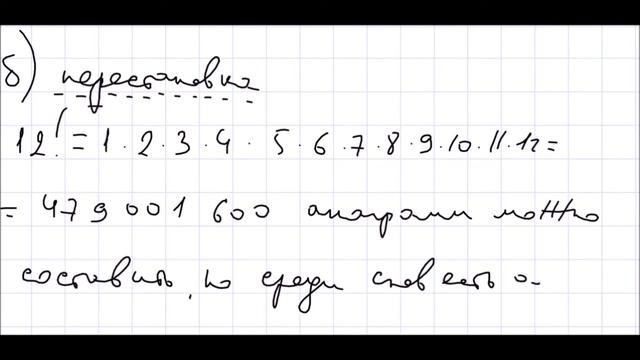 б) перестановка
12! = 1 · 2 · 3 · 4 · 5 · 6 · 7 · 8 · 9 · 10 · 11 · 12 =
= 479 001 600 анаграмм можно
составить, но среди слов есть о